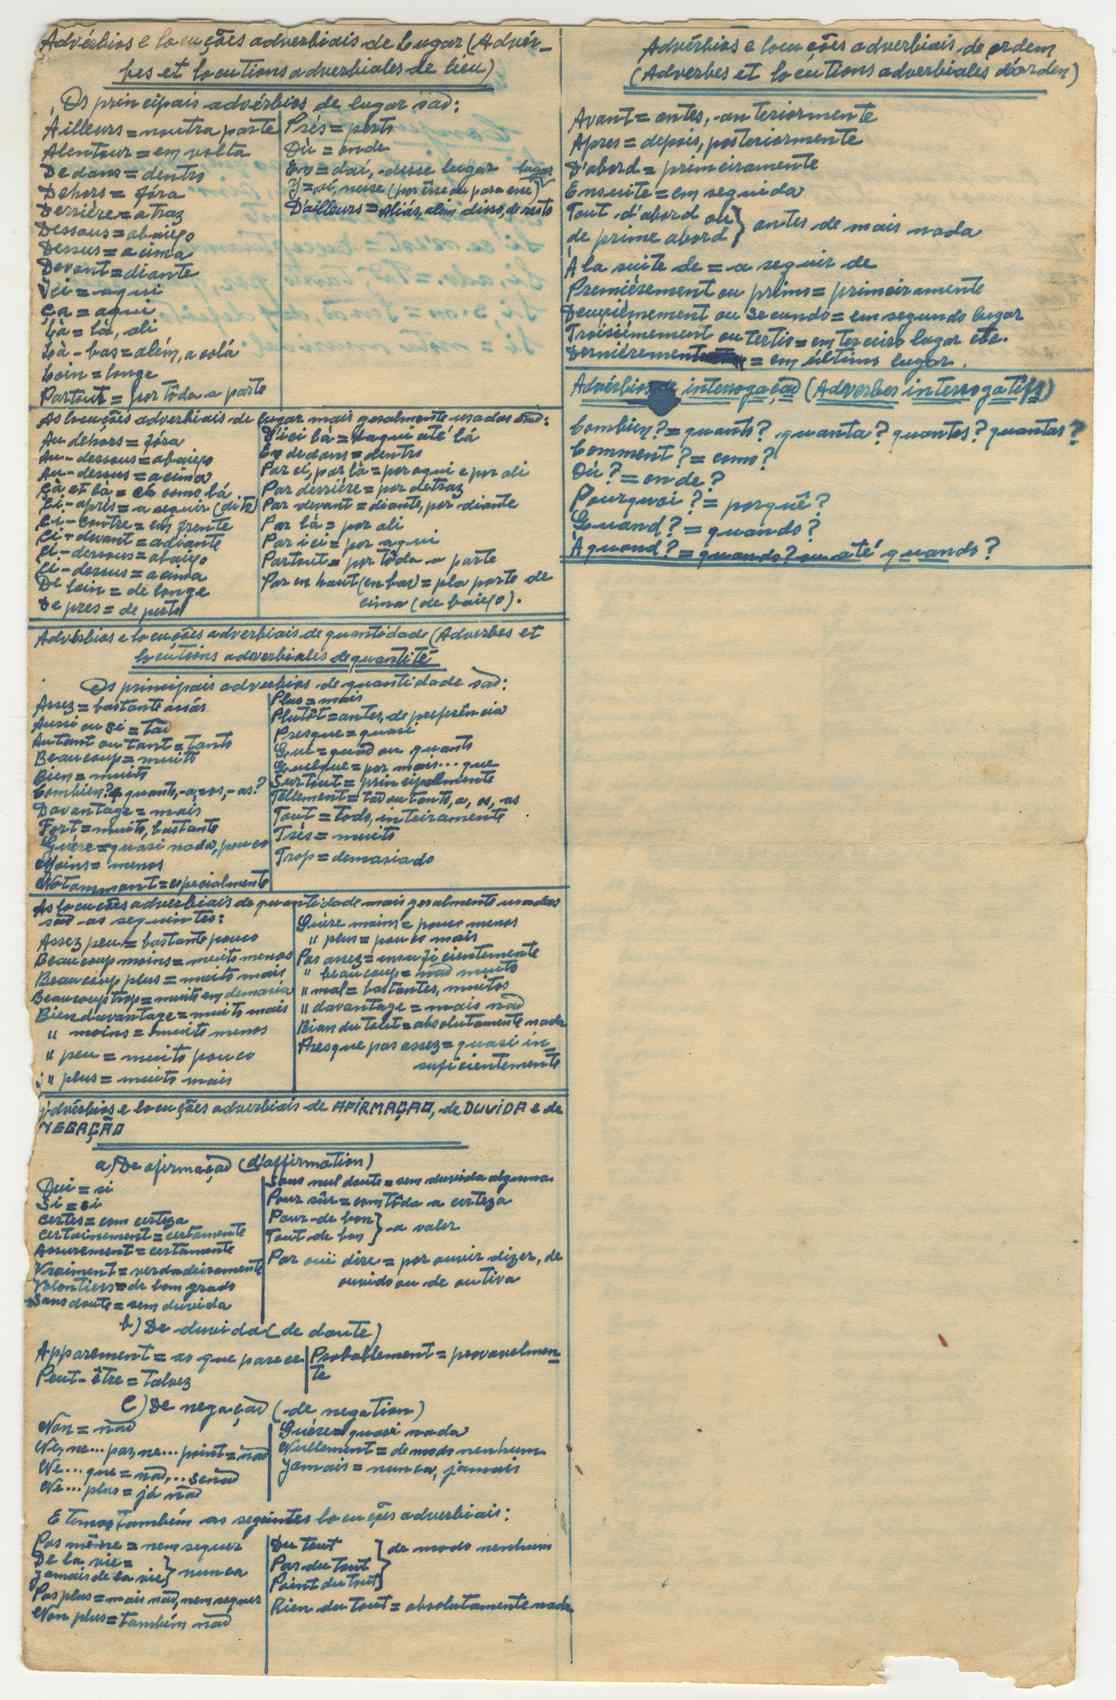 Advérbios e locuções adverbiais de lugar (Advér-
bes et locutions adverbiales de lieu)
Os principais advérbios de lugar são:
Ailleurs = noutra parte
Alentour = em volta
Dedans = dentro
Dehors = fóra
Derriére = atraz
Dessous = abaixo
Dessus = acima
Devant = diante
Ici = aqui
Ça = aqui
Là = lá, ali
Là-bas = além, acolá
Loin = longe
Partout = por tôda a parte
Prés = perto
Où = onde
En = daí, desse lugar
Y = aí, nesse (por êsse ou para esse) lugar
D'ailleurs = aliás, além disso, de resto
As locuções adverbiais de lugar mais geralmente usadas são:
Au dehors = fóra
Au-dessous = abaixo
Au-dessus = acima
Çà et là = cá como lá
Ci-aprés = a seguir (dito)
Ci-contre = em frente
Ci-devant = adiante
Ci-dessous = abaixo
Ci-dessus = acima
De loin = de longe
De pres = de perto
D'ici là = daqui até lá
En dedans = dentro
Par ci, par là = por aqui e por ali
Par derriére = por detraz
Par devant = diante, por diante
Par là = por ali
Par ici = por aqui
Partout = por tôda a parte
Par en haut (en bas) = pla parte de
cima (de baixo).
Advérbios e locuções adverbiais de quantidade (Adverbes et
locutions adverbiales de quantité
Os principais advérbios de quantidade são:
Assez = bastante assás
Aussi ou si = tão
Autant ou tant = tanto
Beaucoup = muito
Bien = muito
Combien? = quanto, -a, -os, -as?
Davantage = mais
Fort = muito, bastante
Guére = quási nada, pouco
Moins = menos
Notamment = especialmente
Plus = mais
Plutôt = antes, de preferência
Presque = quasi
Que = quão ou quanto
Quelque = por mais... que
Surtout = principalmente
Tellement = tão ou tanto, a, os, as
Tout = todo, inteiramente
Trés = muito
Trop = demasiado
As locuções adverbiais de quantidade mais geralmente usadas
são as seguintes:
Assez peu = bastante pouco
Beaucoup moins = muito menos
Beaucoup plus = muito mais
Beaucoup trop = muito em demasia
Bien davantage = muito mais
" moins = muito menos
" peu = muito pouco
" plus = muito mais
Guére moins = pouco menos
" plus = pouco mais
Pas assez = insuficientemente
" beaucoup = não muito
" mal = bastantes, muitos
" davantage = mais não
Rien du tout = absolutamente nada
Presque pas assez = quasi in-
suficientemente
Advérbios e locuções adverbiais de AFIRMAÇÃO, de DUVIDA e de
NEGAÇÃO
a) De afirmação (d'affirmation)
Oui = si
Si = si
Certes = com certeza
Certainement = certamente
Assurement = certamente
Vraiment = verdadeiramente
Volontiers = de bom grado
Sans doute = sem duvida
Sans nul doute = sem duvida alguma
Pour sûr = com tôda a certeza
Pour de bon
Tout de bon } a valer
Par ouï dire = por ouvir dizer, de
ouvido ou de outiva
b) De duvida (de doute)
Apparement = ao que parece
Peut-être = talvez
Probablement = provavelmen-
te
C) De negação (de negation)
Non = não
Ne, ne... pas, ne... point = não
Ne... que = não,... senão
Ne... plus = já não
Guére = quasi nada
Nullement = de modo nenhum
Jamais = nunca, jamais
E temos também as seguintes locuções adverbiais:
Pas même = nem sequer
De la vie =
Jamais de la vie } nunca
Pas plus = mais não, nem sequer
Non plus = também não
Du tout
Pas du tout
Point du tout } de modo nenhum
Rien du tout = absolutamente nada
Advérbios e locuções adverbiais de ordem
(Adverbes et locutions adverbiales d'orden)
Avant = antes, anteriormente
Apres = depois, posteriormente
D'abord = primeiramente
Ensuite = em seguida
Tout d'abord ou
de prime abord } antes de mais nada
À la suite de = a seguir de
Premiérement ou primo = primeiramente
Deuxiémement ou secundo = em segundo lugar
Troisiémement ou tertio = em terceiro lugar etc.
Derniérement = em último lugar.
Advérbios de interrogação (Adverbes interrogatifs)
Combien? = quanto? quanta? quantos? quantas?
Comment? = como?
Où? = onde?
Pourquoi? = porquê?
Quand? = quando?
À quand? = quando? ou até quando?